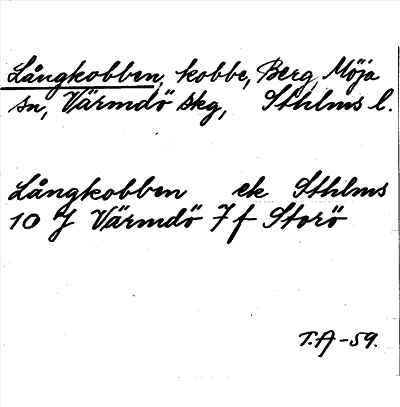 Långkobben, kobbe, Berg, Möja
sn, Värmdö skg, Sthlms l.
Långkobben ek Sthlms
10 J Värmdö 7 f Storö
T.A-59.